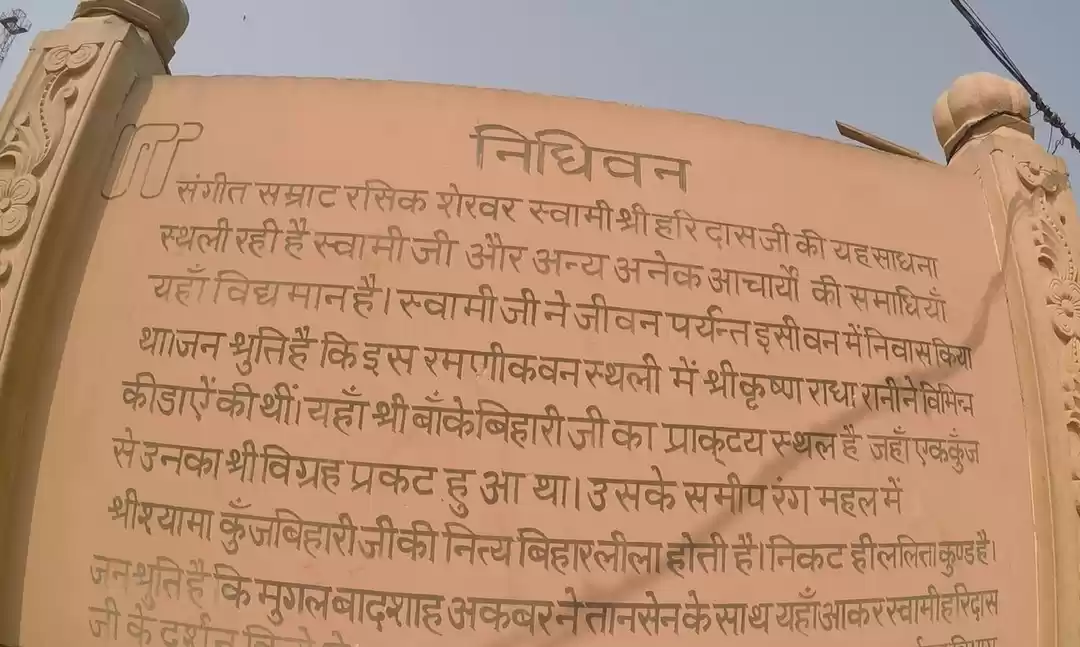 निधिवन
संगीत सम्राट रसिक शेरवर स्वामी श्री हरिदासजी की यह साधना
स्थली रही है स्वामी जी और अन्य अनेक आचार्यों की समाधियाँ
यहाँ विद्यमान है। स्वामी जी ने जीवन पर्यन्त इसी वन में निवास किया
था।जन श्रुति है कि इस रमणीक वन स्थली में श्री कृष्ण राधा रानी ने विभिन्न
कीडाऐं की थीं। यहाँ श्री बाँके बिहारी जी का प्राकट्य स्थल है जहाँ एक कुँज
से उनका श्री विग्रह प्रकट हुआ था। उसके समीप रंग महल में
श्री श्यामा कुँजबिहारी जी की नित्य बिहार लीला होती है। निकट ही ललिता कुण्ड है।
जन श्रुति है कि मुगल बादशाह अकबर ने तानसेन के साथ यहाँ आकर स्वामी हरिदास
जी के दर्शन किये थे